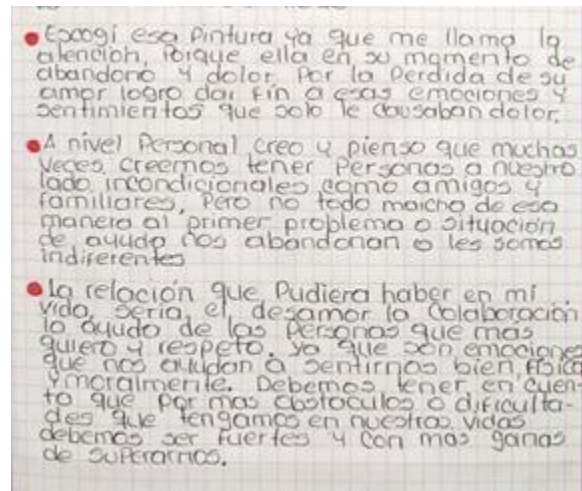 • Escogi esa Pintura ya que me llama la
atención, Porque ella en su momento de
abandono y dolor Por la Perdida de su
amor logro dar fin a esas emociones y
sentimientos que solo le causaban dolor.
• A nivel Personal creo y pienso que muchas
veces creemos tener Personas a nuestro
lado incondicionales como amigos y
familiares, Pero no todo marcha de esa
manera al primer problema o situación
de ayuda nos abandonan o les somos
indiferentes
• La relación que Pudiera haber en mi
vida, seria, el, desamor la Colaboración
la ayuda de las Personas que mas
quiero y respeto. ya que son emociones
que nos ayudan a sentirnos bien, física
y moralmente. Debemos tener en cuen-
ta que por mas obstaculos o dificulta-
des que tengamos en nuestras vidas
debemos ser fuertes y con mas ganas
de superarnos.